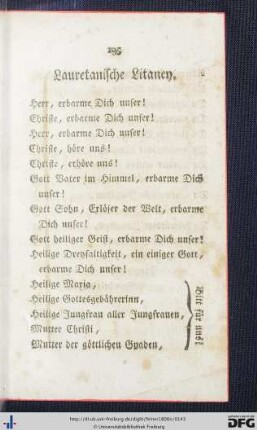 195
Lauretanische Litaney.
Herr, erbarme Dich unser!
Christe, erbarme Dich unser!
Herr, erbarme Dich unser!
Christe, höre uns!
Christe, erhöre uns!
Gott Vater im Himmel, erbarme Dich
unser!
Gott Sohn, Erlöser der Welt, erbarme
Dich unser!
Gott heiliger Geist, erbarme Dich unser!
Heilige Dreyfaltigkeit, ein einiger Gott,
erbarme Dich unser!
Heilige Maria,
Heilige Gottesgebährerinn,
Heilige Jungfrau aller Jungfrauen,
Mutter Christi,
Mutter der göttlichen Gnaden,
Bitt für uns!
© Universitätsbibliothek Freiburg
Gefördert durch
DFG